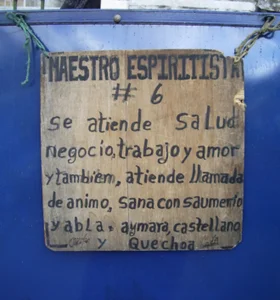 MAESTRO ESPIRITISTA
# 6
se atiende salud
negocio, trabajo y amor
y tambien, atiende llamada
de animo, sana con saumerio
y abla, aymara, castellano
y Quechoa